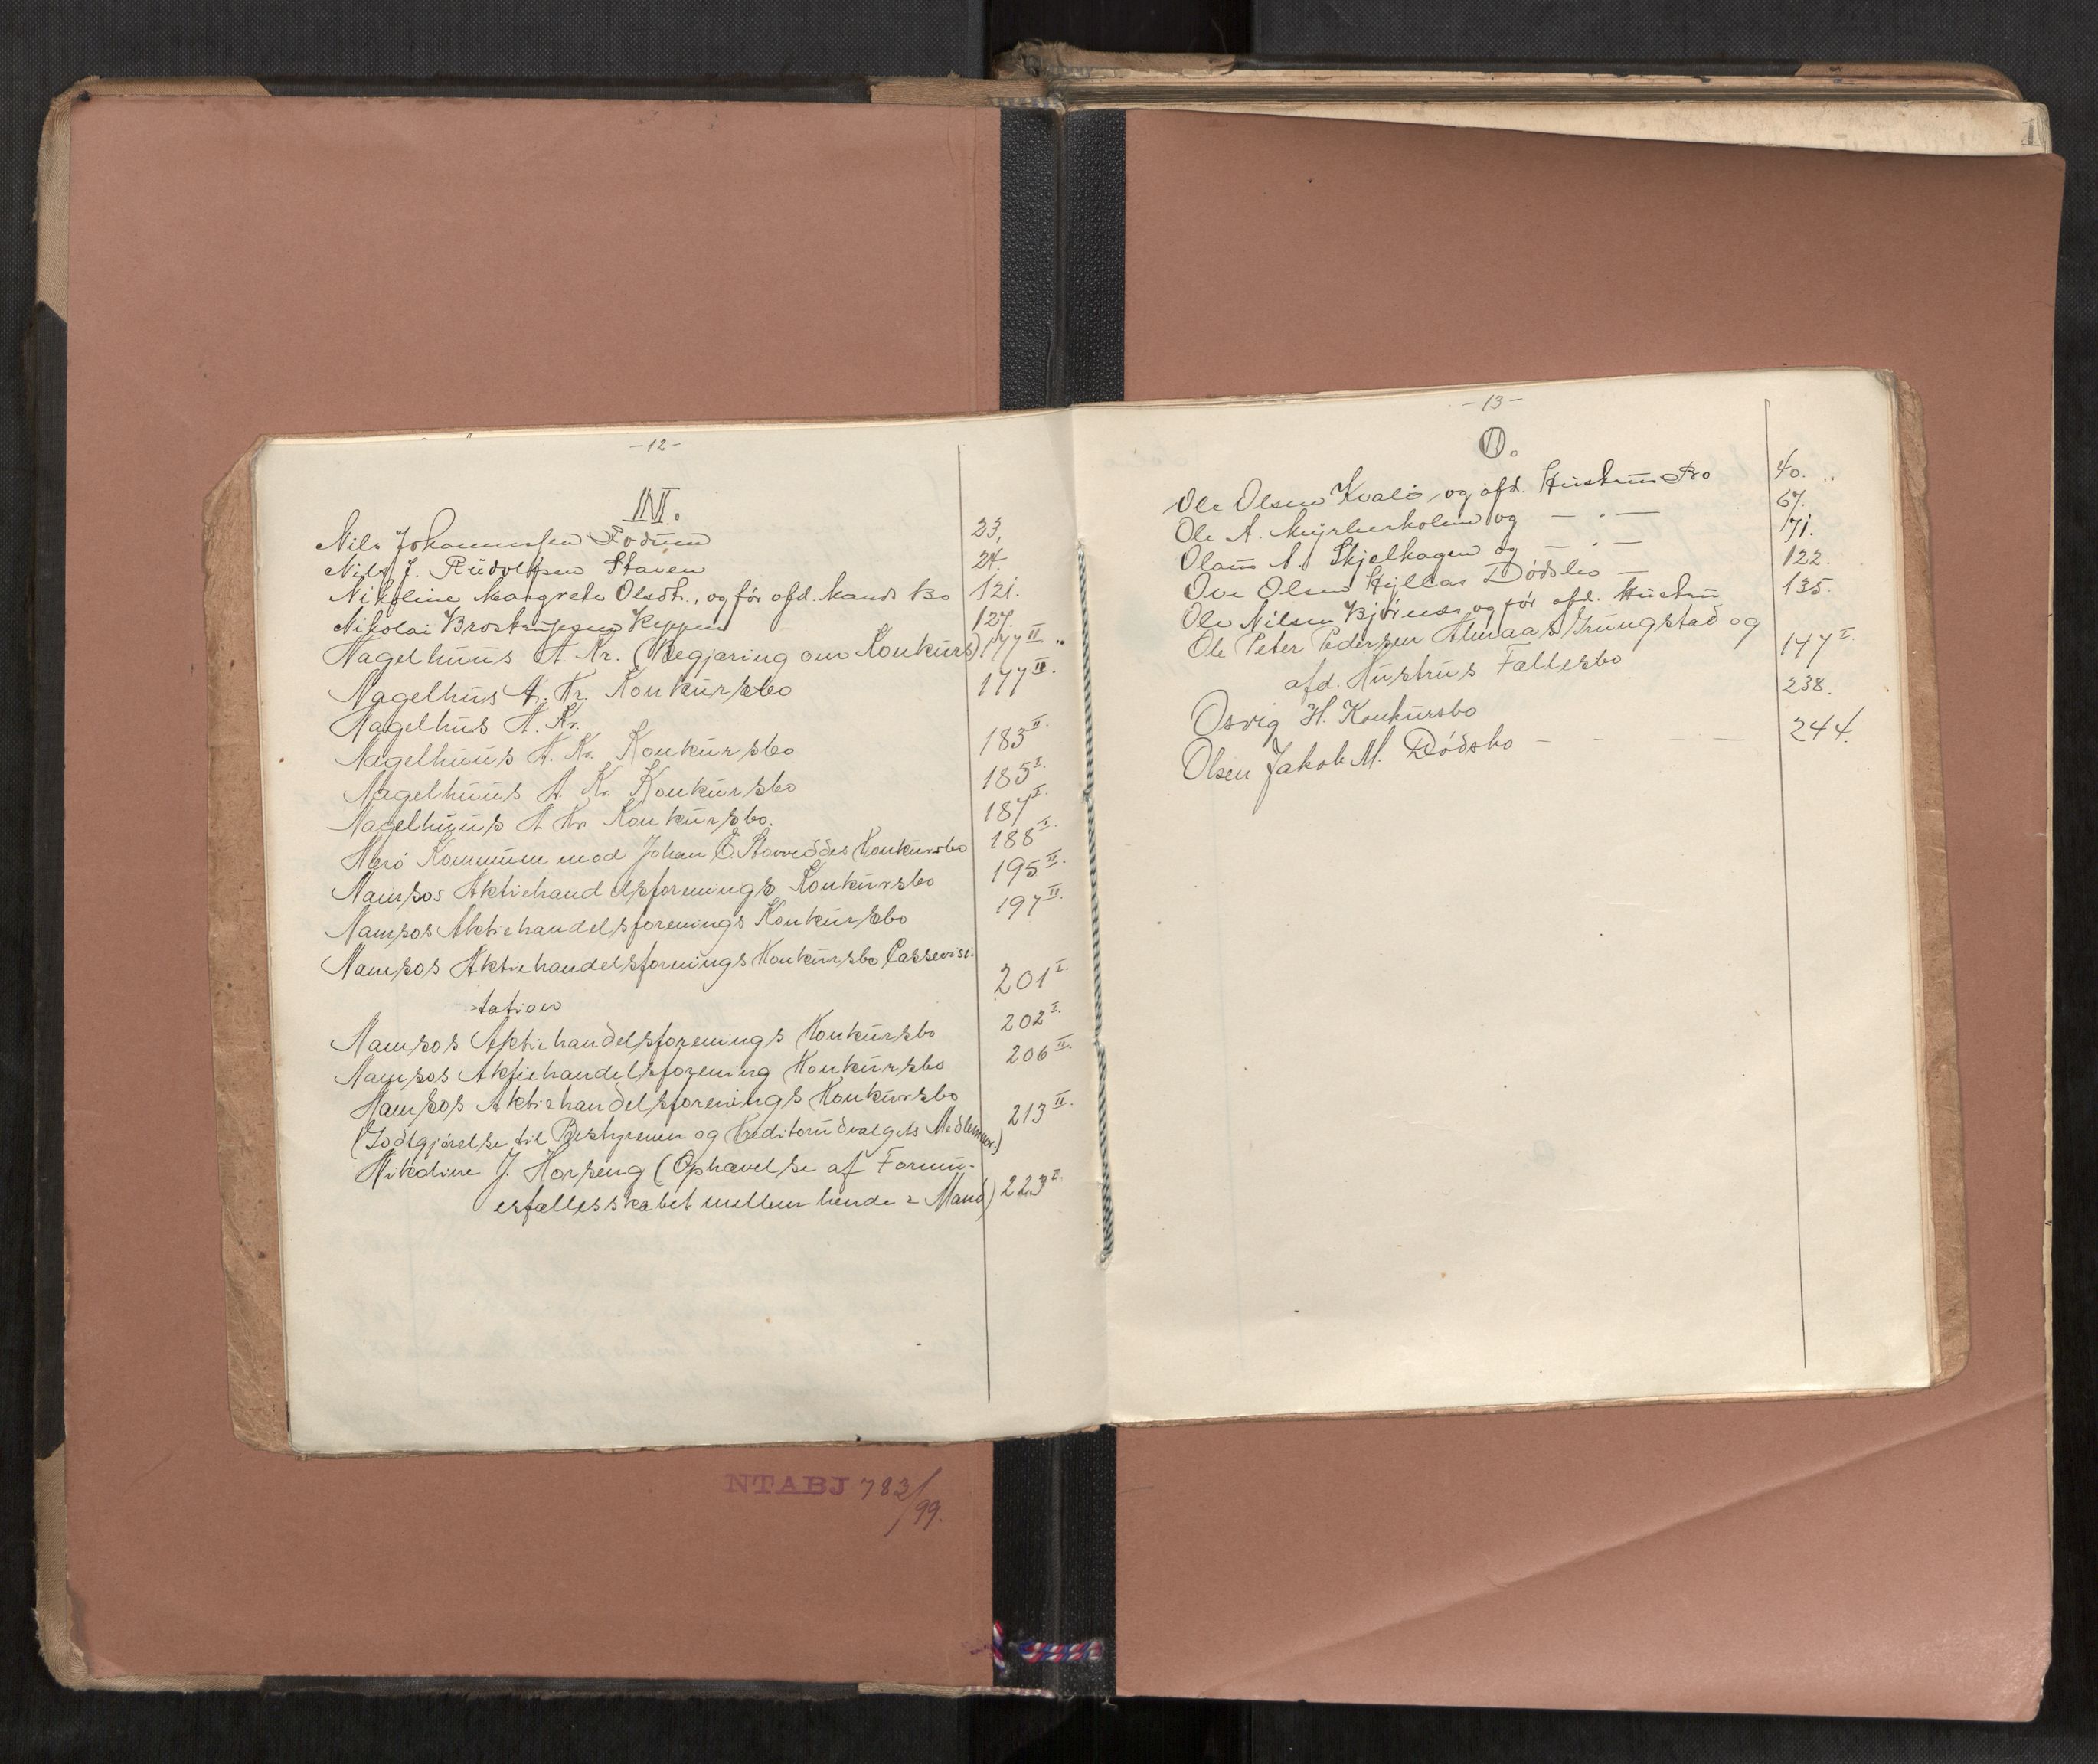 -12-
N.
Nils Johannessen Rodum 23.
Nils J. Rudolfsen Staven 24.
Nikoline Margrete Olsdtr., og før afd. Mands Bo 121.
Nikolai Brostrupsens Keppen 127.
Nagelhuus A. Kr. (Begjæring om Konkurs) 177 II.
Nagelhus A. Kr. Konkursbo 177 II.
Nagelhus A. Kr.
Nagelhuus A. Kr. Konkursbo 183 II.
Nagelhuus A. Kr. Konkursbo 185 I.
Nagelhuus A Kr Konkursbo. 187 I.
Nærø Kommune mod Johan E. Konkursbo 188 I.
Namsos Aktiehandelsforenings Konkursbo 195 II.
Namsos Aktiehandelsforenings Konkursbo 197 II.
Namsos Aktiehandelsforenings Konkursbo Cassevisi-
tation 201 I.
Namsos Aktiehandelsforenings Konkursbo 202 I.
Namsos Aktiehandelsforening Konkursbo 206 II.
Namsos Aktiehandelsforenings Konkursbo
(Godtgjørelse til Bestyreren og Kreditorudvalgets Medlemmer.) 213 II.
Nikoline J. Horseng (Ophævelse af Formu-
esfællesskabet mellem hende & Mand) 223 I.
-13-
O.
Ole Olsen Kvalø, og afd. Hustrus Bo 40.
Ole A. og — . — 67.
Olaus A. Skjelhagen og — . — 71.
Ove Olsen Hyllas Dødsbo — 122.
Ole Nilsen Bjørnes og før afd. Hustru 135.
Ole Peter Pedersen Almaas Grungstad og
afd. Hustrus Fællesbo 147 I.
Osvig H. Konkursbo 238.
Olsen Jakob M. Dødsbo - - - — 244.
NTABJ 783/99.
1